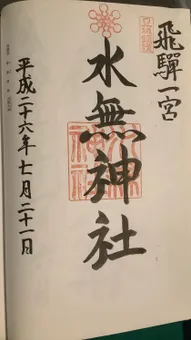 飛騨一宮
水無神社
平成二十六年七月二十一日